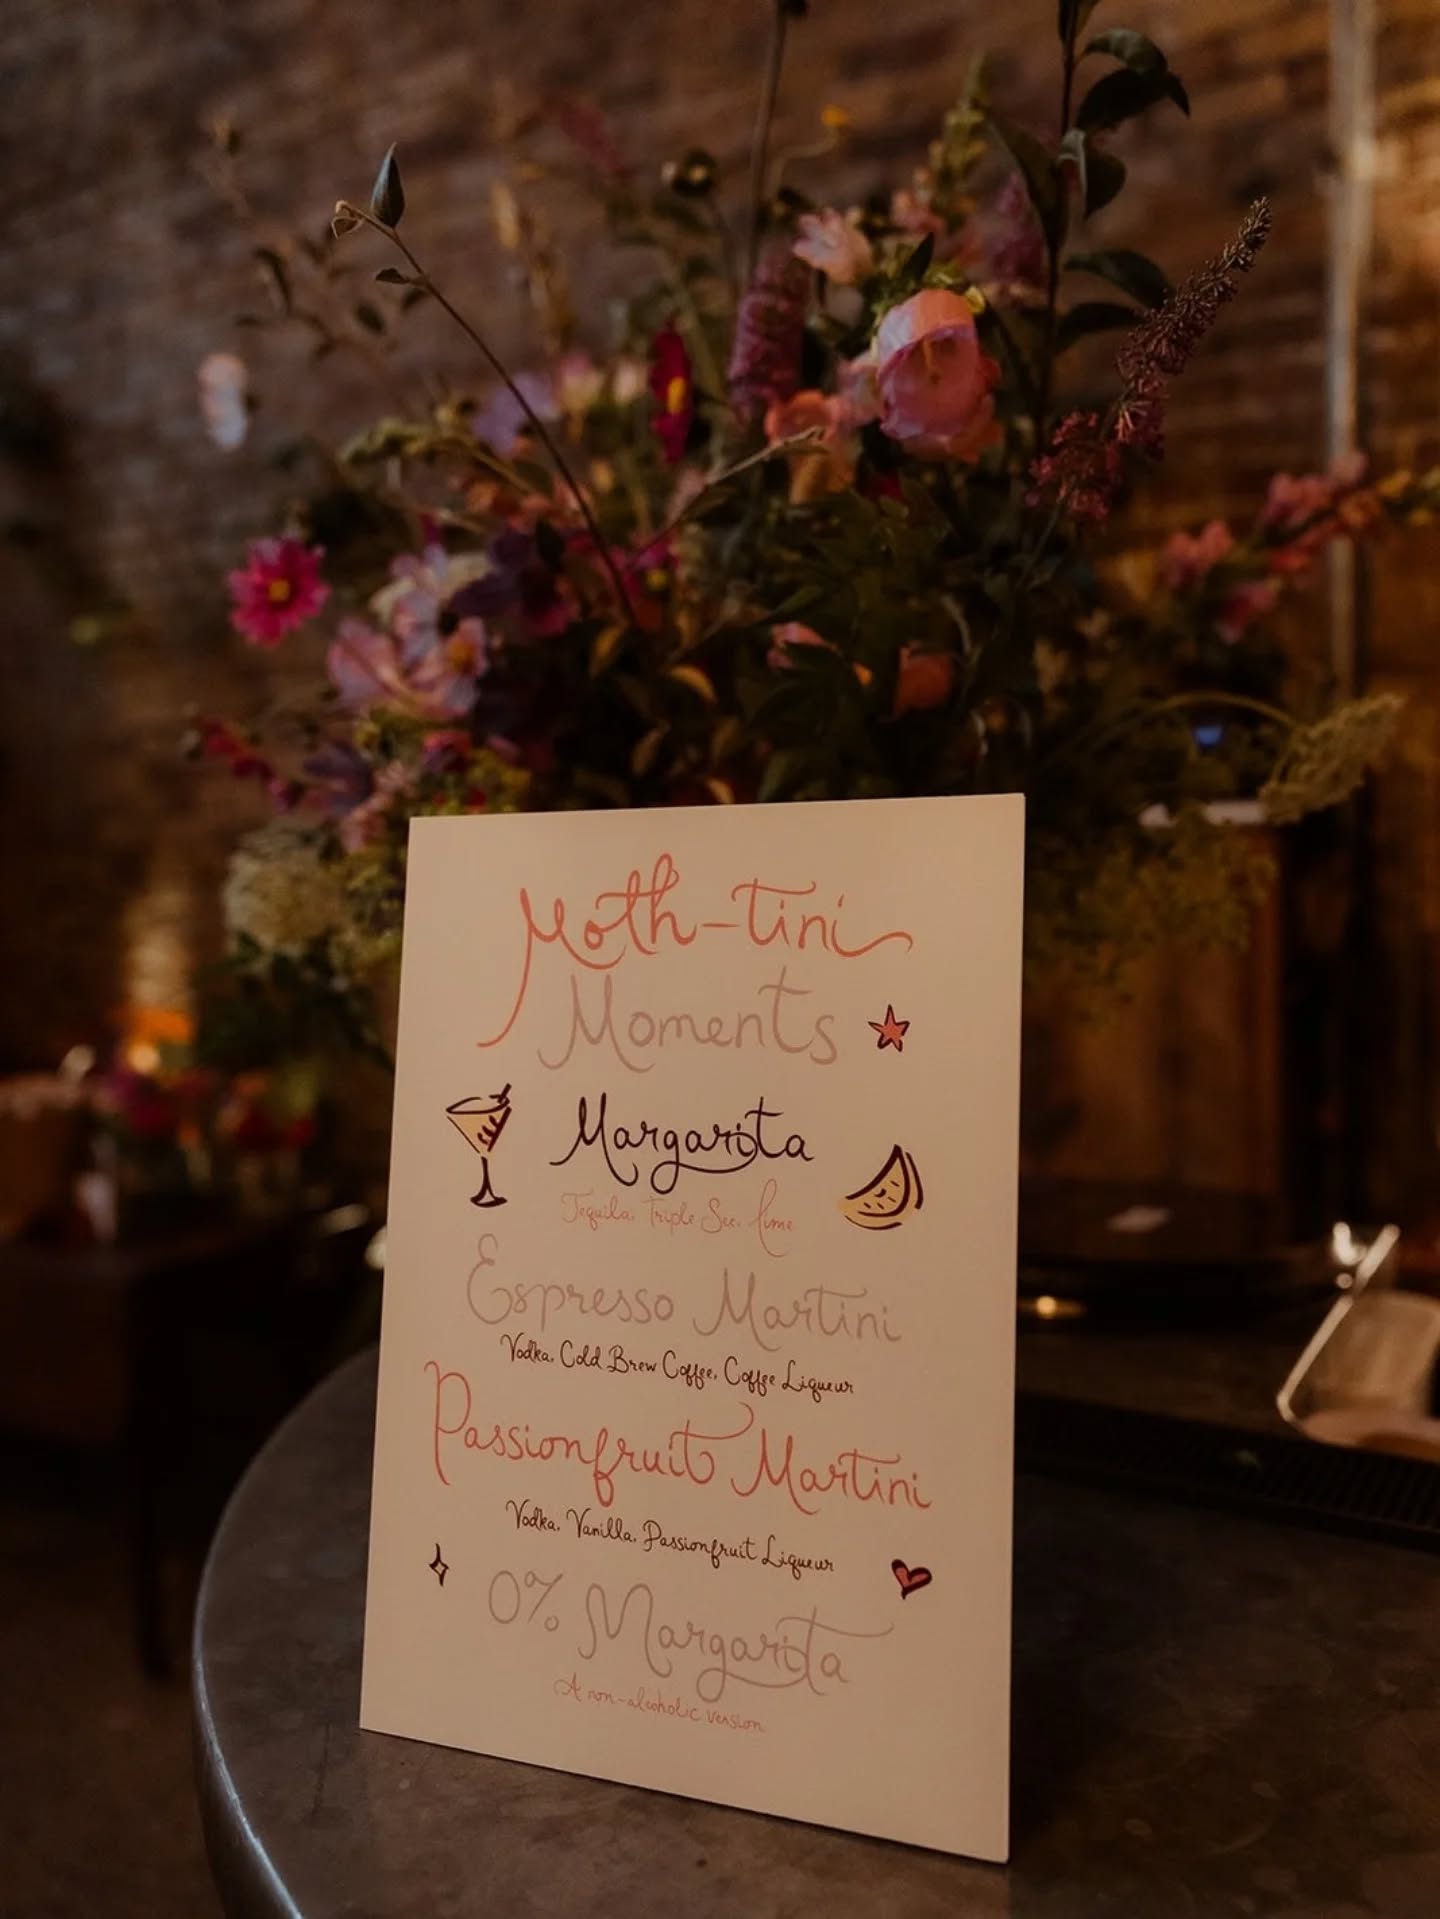 Moth-tini
Moments
Margarita
Tequila, Triple Sec, lime
Espresso Martini
Vodka, Cold Brew Coffee, Coffee Liqueur
Passionfruit Martini
Vodka, Vanilla, Passionfruit Liqueur
0% Margarita
A non-alcoholic version